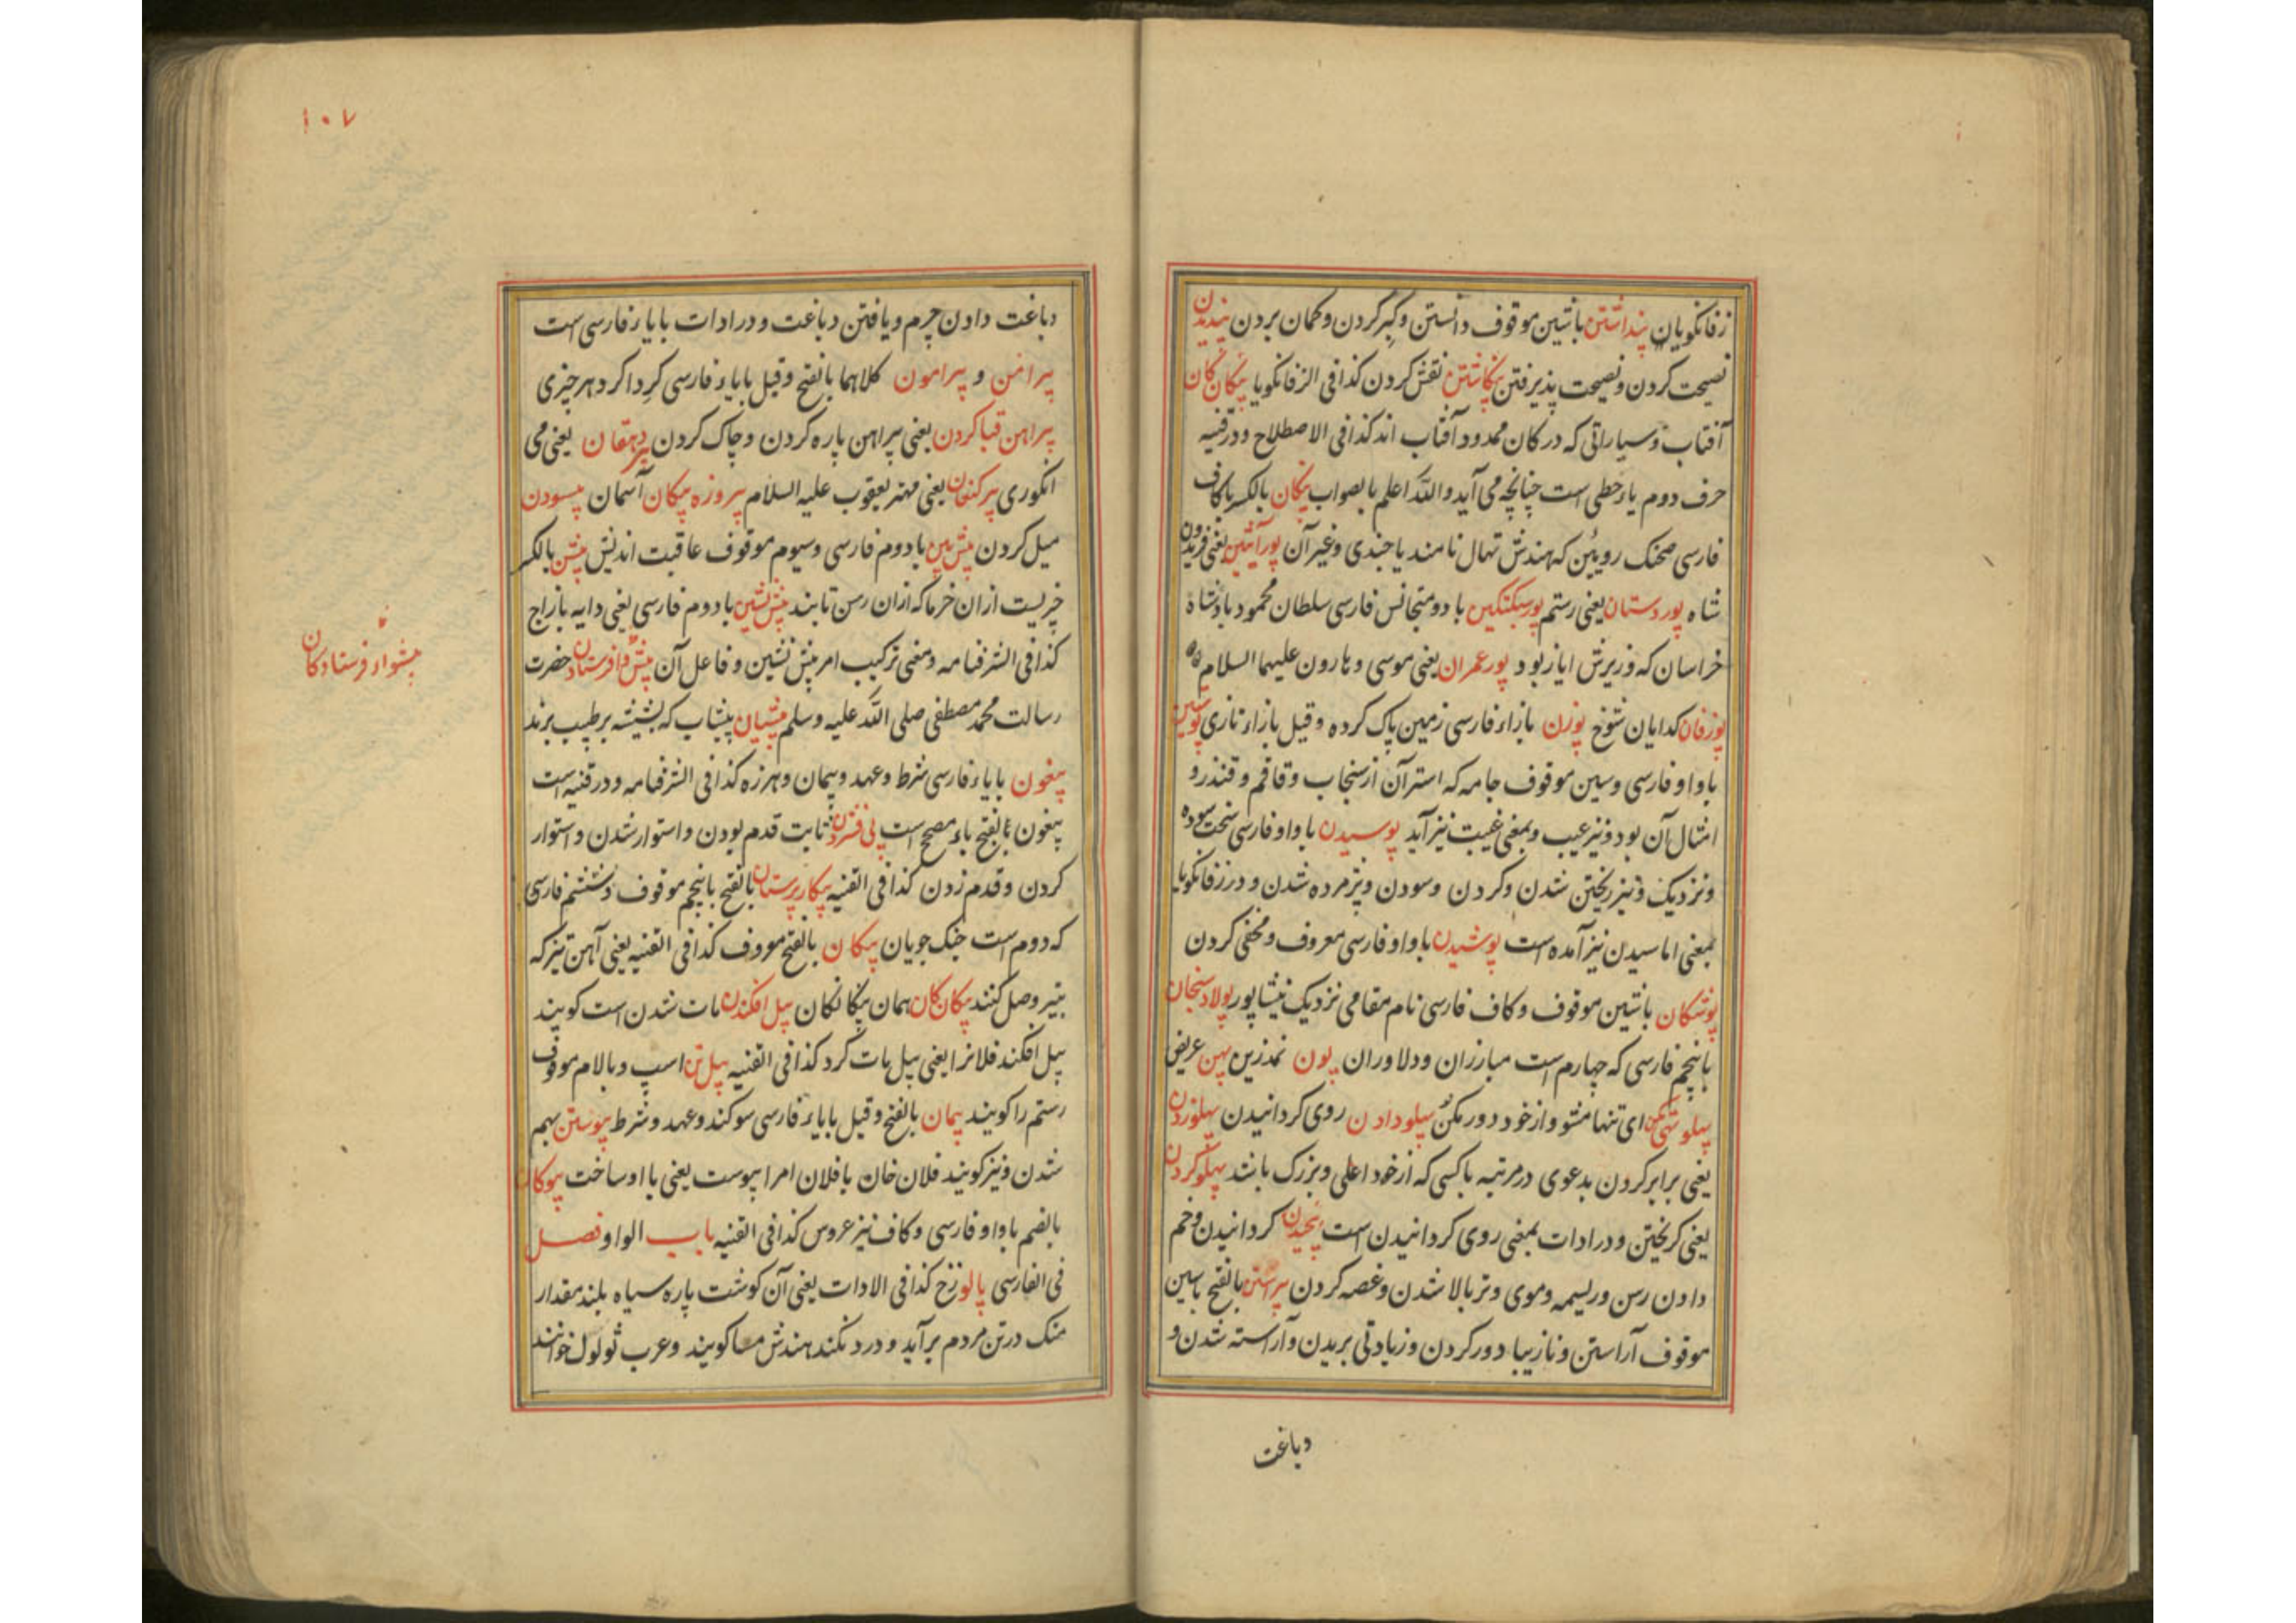 زفانکویان پنداشتن باشین موقوف دانستن و کبر کردن و کمان بردن پندیدن
نصیحت کردن و نصیحت پذیرفتن پنکاشتن نقش کردن کذا فی الزفانکویا پنکان کان
آفتاب و سیاراتی که در کان ممدود آفتاب اند کذا فی الاصطلاح و در قنیه
حرف دوم یاء حطی است چنانچه می آید والله اعلم بالصواب پنکان بالکسر با کاف
فارسی صحنک رویین که هندش تهال نامند یا چندی و غیر آن پورآتبین یعنی فریدون
شاه پور دستان یعنی رستم پور سبکتکین با دو متجانس فارسی سلطان محمود بادشاه
خراسان که وزیرش ایاز بود پور عمران یعنی موسی و هارون علیهما السلام
پوزفان کدایان شوخ پوزن بازاء فارسی زمین پاک کرده و قیل بازاء تازی پوستین
باواو فارسی و سین موقوف جامه که استر آن از سنجاب و قاقم و قندز و
امثال آن بود و نیز عیب و بمعنی غیبت نیز آید پوسیدن باواو فارسی سخت سوده
و نزدیک و نیز ریختن شدن و کردن و سودن و پژمرده شدن و در زفانکویا
بمعنی اماسیدن نیز آمده است پوشیدن باواو فارسی معروف و مخفی کردن
پوشکان باشین موقوف و کاف فارسی نام مقامی نزدیک نیشاپور پولاد سنجان
باپنجم فارسی که چهارم است مبارزان و دلاوران پون نمد زین پهن عریض
پهلو تهی مکن ای تنها مشو و از خود دور مکن پهلو دادن روی کردانیدن پهلو زدن
یعنی برابر کردن بدعوی در مرتبه باکسی که از خود اعلی و بزرک باشد پهلو کردن
یعنی کریختن و در ادات بمعنی روی کردانیدن است پیچیدن کردانیدن و خم
دادن رسن و ریسمه و موی و تر بالا شدن و غصه کردن پیراستن بالفتح باسین
موقوف آراستن و نازیبا دور کردن و زیادتی بریدن و آراسته شدن و
دباغت
۱۰۷
دباغت دادن چرم و یافتن دباغت و در ادات بایاء فارسی است
پیرامن و پیرامون کلاهما بالفتح و قیل بایاء فارسی کرداکرد هر چیزی
پیراهن قبا کردن یعنی پیراهن پاره کردن و چاک کردن پیر دهقان یعنی می
انکوری پیر کنعان یعنی مهتر یعقوب علیه السلام پیروزه پیکان آسمان پیسودن
میل کردن پیش بین بادوم فارسی و سیوم موقوف عاقبت اندیش پیشن بالکسر
چیزیست ازان خرما که ازان رسن تابند پیش نشین بادوم فارسی یعنی دایه بازاج
کذا فی الشرفنامه و معنی ترکیب امر پیش نشین و فاعل آن حضرت
پیشواء فرستادکان
رسالت محمد مصطفی صلی الله علیه وسلم پیشیان پیشاب که بشیشه بر طبیب برند
پیغون بایاء فارسی شرط و عهد و پیمان و هرزه کذا فی الشرفنامه و در قنیه است
پیغون بالفتح باء مصحح است پی فشردن ثابت قدم بودن و استوار شدن و استوار
کردن و قدم زدن کذا فی القنیه پیکار پرستان بالفتح باپنجم موقوف و ششم فارسی
که دوم است جنک جویان پیکان بالفتح معروف کذا فی القنیه یعنی آهن تیز که
بتیر وصل کنند پیکان کان همان پنکانکان پیل افکندن مات شدن است کویند
پیل افکند فلانرا یعنی پیل مات کرد کذا فی القنیه پیل تن اسپ و بالام موقوف
رستم را کویند پیمان بالفتح و قیل بایاء فارسی سوکند و عهد و شرط پیوستن بهم
شدن و نیز کویند فلان خان بافلان امرا پیوست یعنی با او ساخت پیوکان
بالضم باواو فارسی و کاف نیز عروس کذا فی القنیه باب الواو فصل
فی الفارسی پالو زخ کذا فی الادات یعنی آن کوشت پاره سیاه بلند مقدار
منک در تن مردم برآید و درد نکند هندش مسا کویند و عرب ثولول خوانند